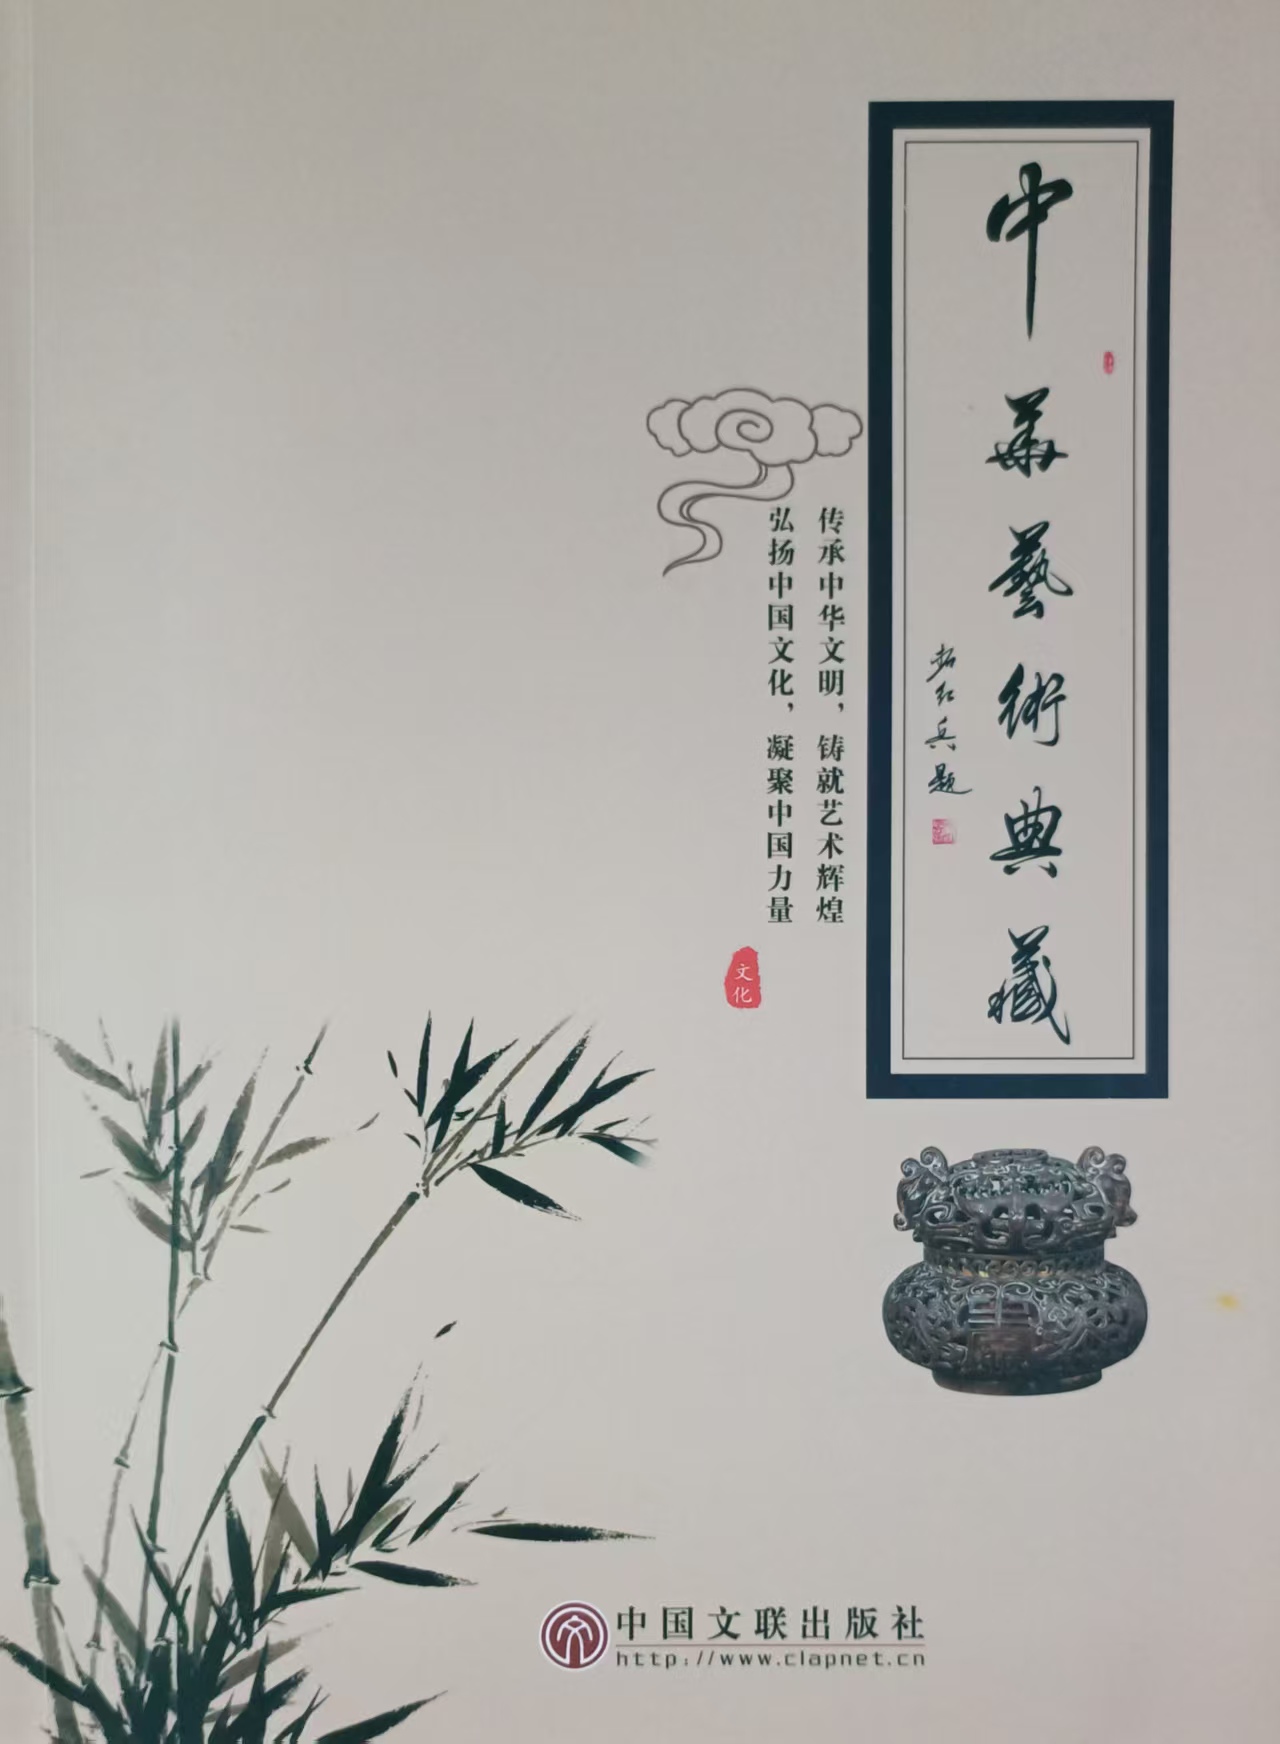 中華藝術典藏
红兵题
传承中华文明，铸就艺术辉煌
弘扬中国文化，凝聚中国力量
文化
中国文联出版社
http://www.clapnet.cn